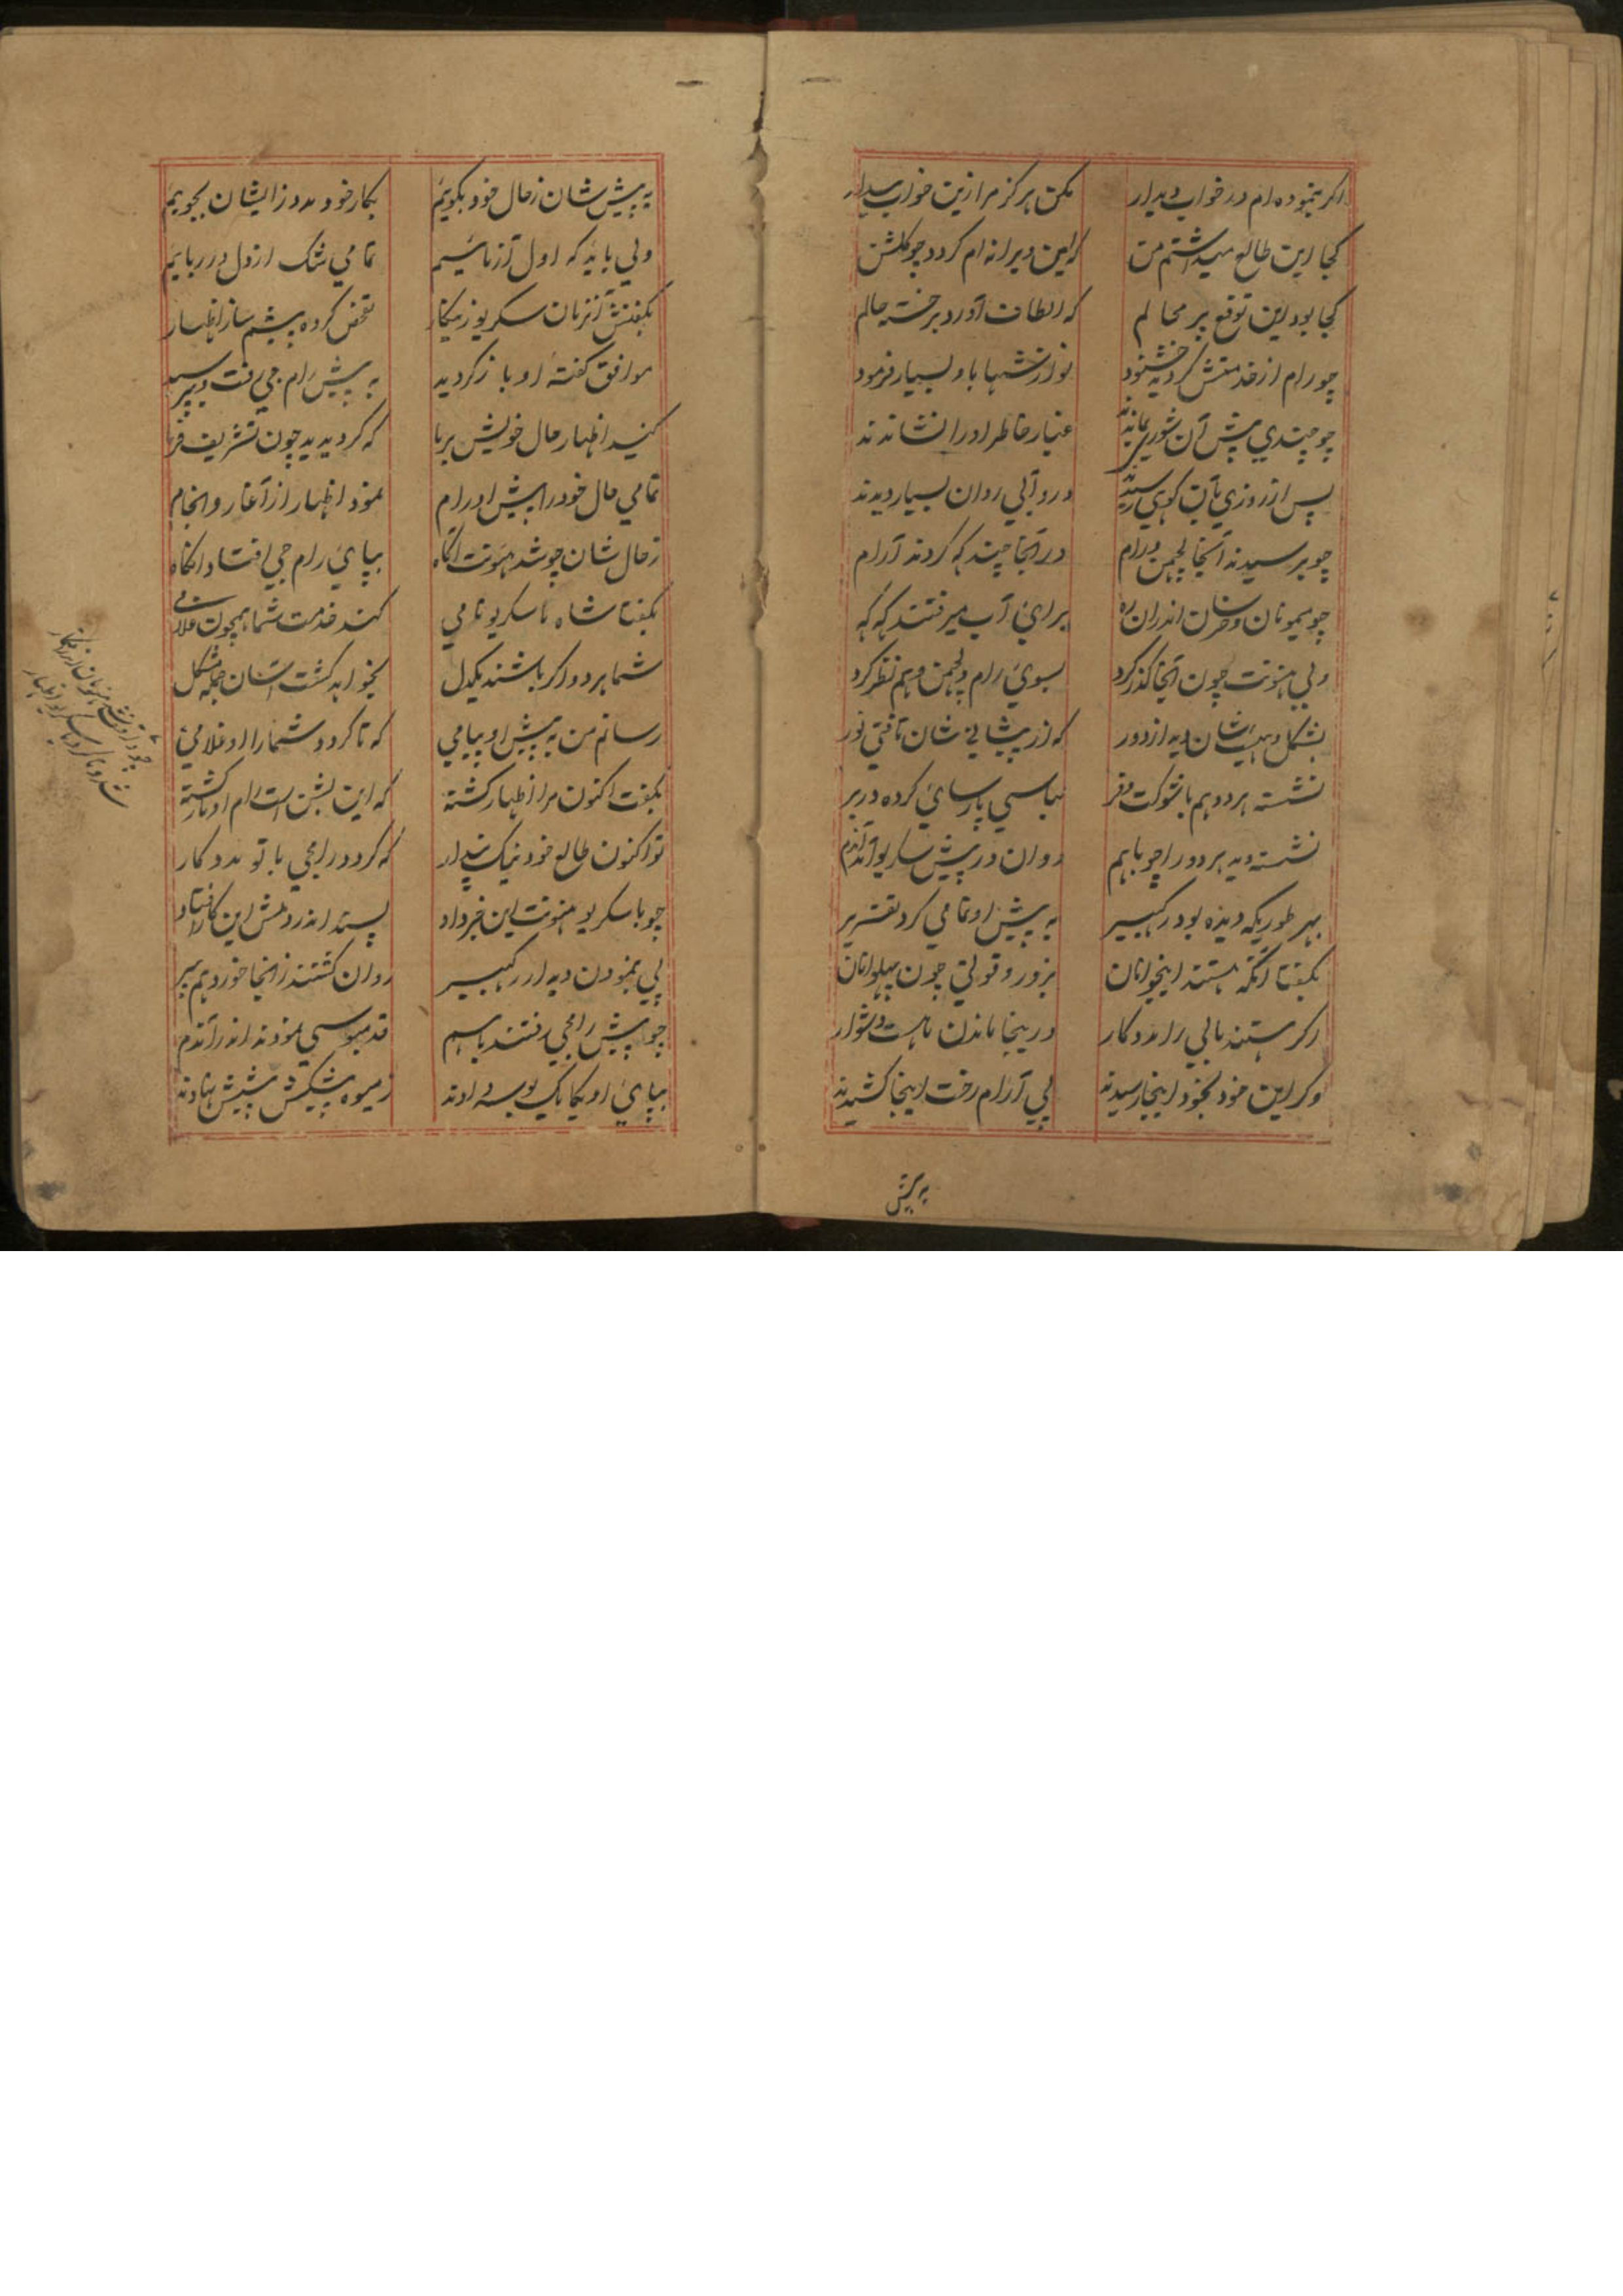 اکر بنموده ام در خواب دیدار مکن هرکز مرا زین خواب بیدار
کجا این طالع میداشتم من که این ویرانه ام کردد چو کلشن
کجا بود این توقع بر محالم که الطاف آورد بر خسته حالم
چو رام از خدمتش کردید خشنود نوازشها باو بسیار فرمود
چو چندی پیش آن غبار خاطر او را نشاندند
پس از روزی بآن کوهی رسیدند درو آبی روان بسیار دیدند
چو برسیدند آنجا لچمن و رام در آنجا چند که کردند آرام
چو میمونان و خرسان اندران ره برای آب میرفتند که که
ولی هنونت چون آنجا کذر کرد بسوی رام و لچمن هم نظر کرد
بشکل و هیئت شان دید از دور که از پیشانی شان تافتی نور
نشسته هر دو هم با شوکت و فر لباسی پارسای کرده در بر
نشسته دید هر دو را چو باهم روان در پیش سکریو آمد آندم
بهر طوریکه دیده بود رکبیر به پیش او تمامی کرد تقریر
بکفتا آنکه هستند اینجوانان بزور و قوتی چون پهلوانان
اکر هستند بالی را مددکار درینجا ماندن ماست دشوار
وکر این خود بخود اینجا رسیدند پی آرام رخت اینجا کشیدند
به پیش
به پیش شان ز حال خود بکویم بکار خود مدد ز ایشان بجویم
ولی باید که اول آزمائیم تمامی شک از دل در ربایم
بکفتش آنزمان سکریو زینکار تفحص کرده پیشم ساز اظهار
موافق کفته او باز کردید به پیش رام جی رفت و بپرسید
کنید اظهار حال خویش بر ما که کردیدید چون تشریف فرما
تمامی حال خود را پیش او رام نمود اظهار از آغاز و انجام
ز حال شان چو شد هنونت آکاه بپای رام جی افتاد آنکاه
بکفتا شاه ما سکریو نامی کند خدمت شما همچون غلامی
شما هر دو اکر باشند یکدل بخواهد کشت آسان جمله مشکل
رسانم من به پیش او پیامی که تا کردد شما را او غلامی
بکفت اکنون مرا اظهار کشته که این بشن است رام اوتار کشته
تو اکنون طالع خود نیک پندار که کردد رامجی با تو مددکار
چو با سکریو هنونت این خبر داد پسند اندر دلش این کار افتاد
پی بنمودن دیدار رکبیر روان کشتند زانجا خورد هم پیر
چو پیش رامجی رفتند باهم قدمبوسی نمودند اندر آندم
بپای او یکایک بوسه دادند ز میوه پیشکش پیشش نهادند